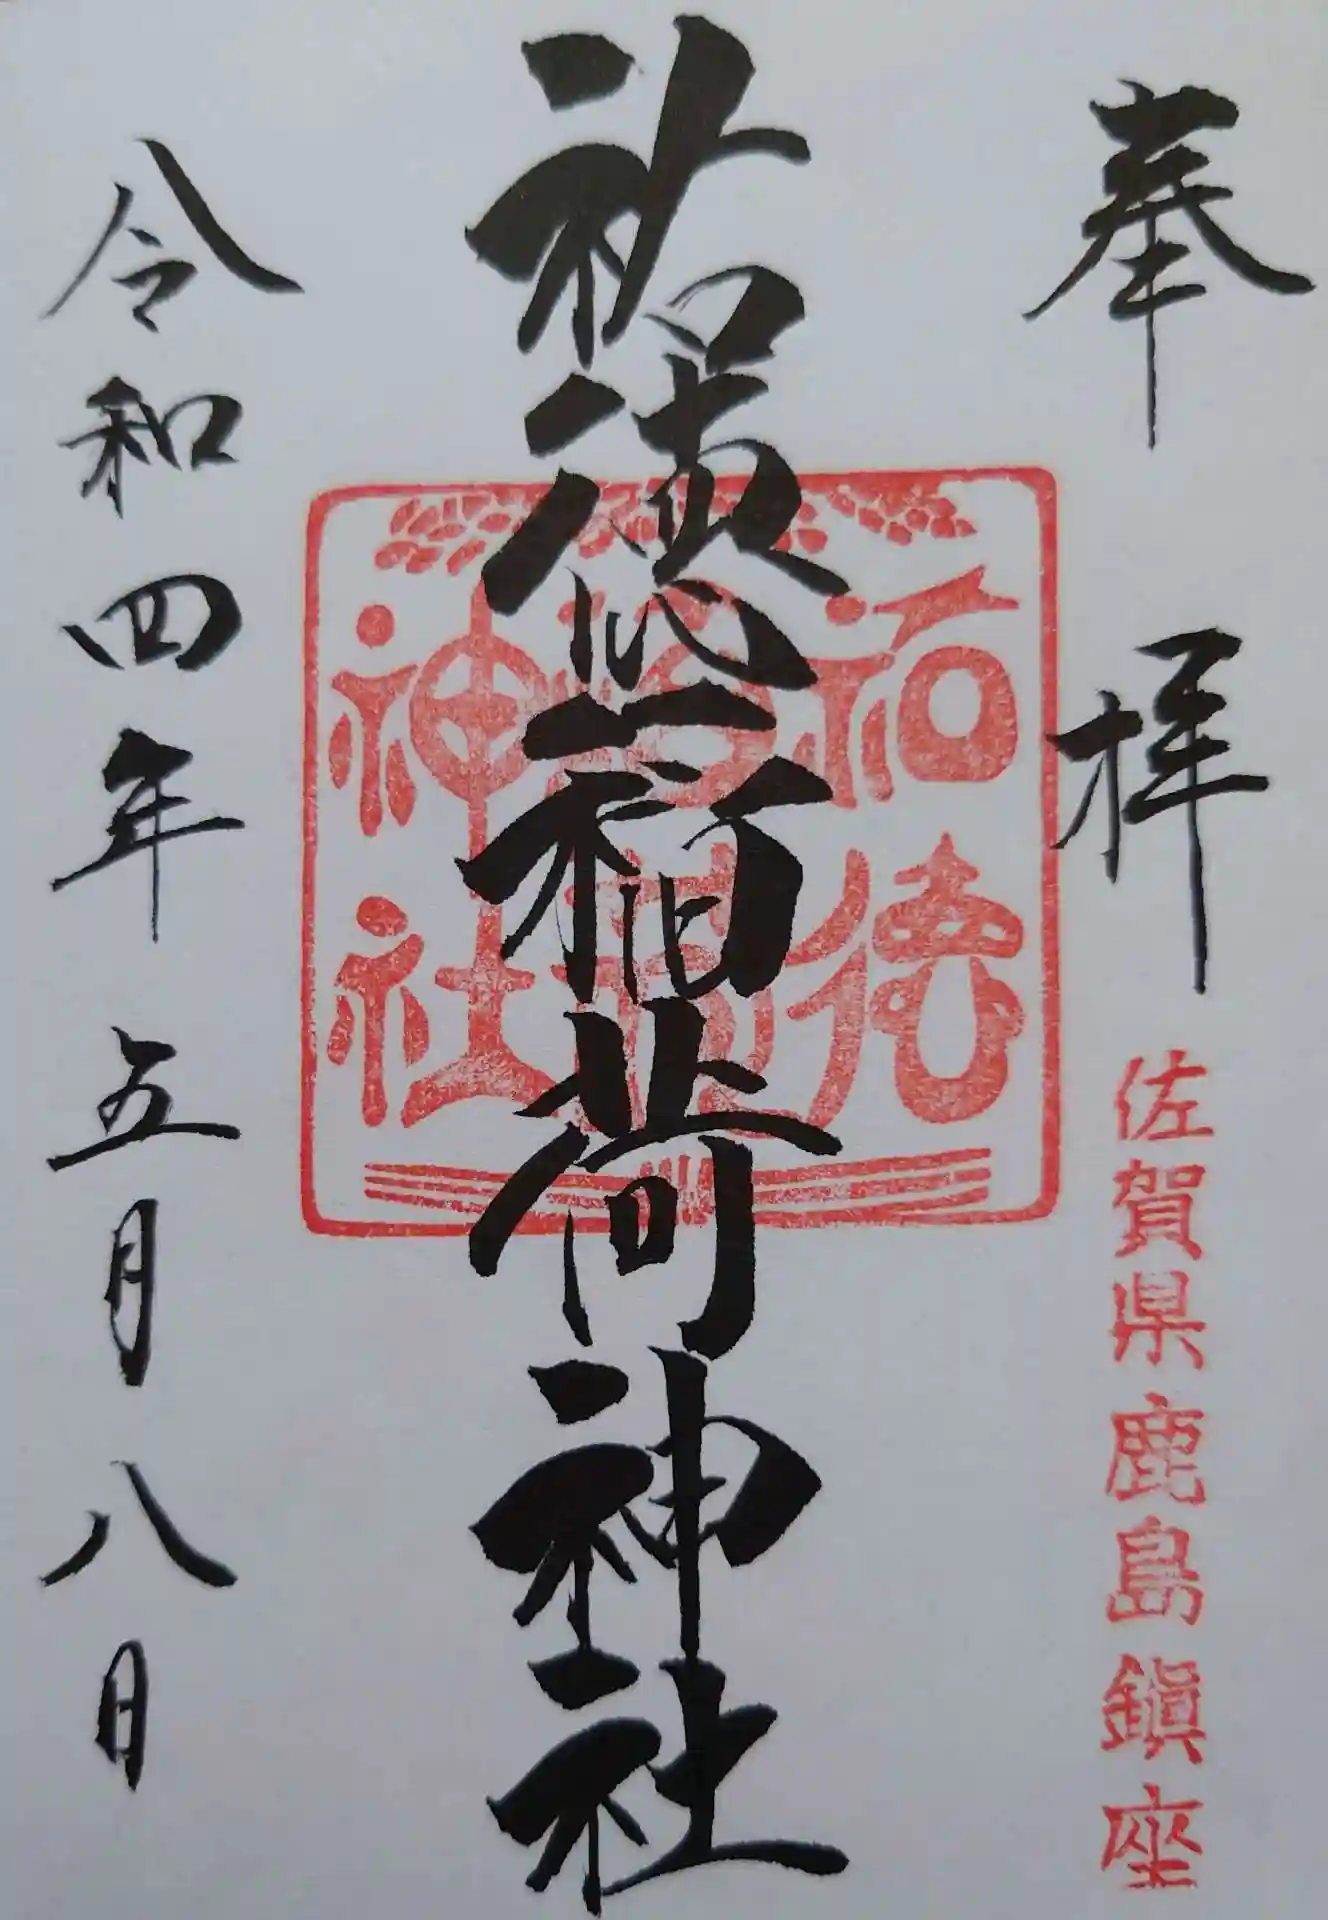 奉拝
佐賀県鹿島鎮座
祐徳稲荷神社
祐徳
稲荷
神社
令和四年五月八日